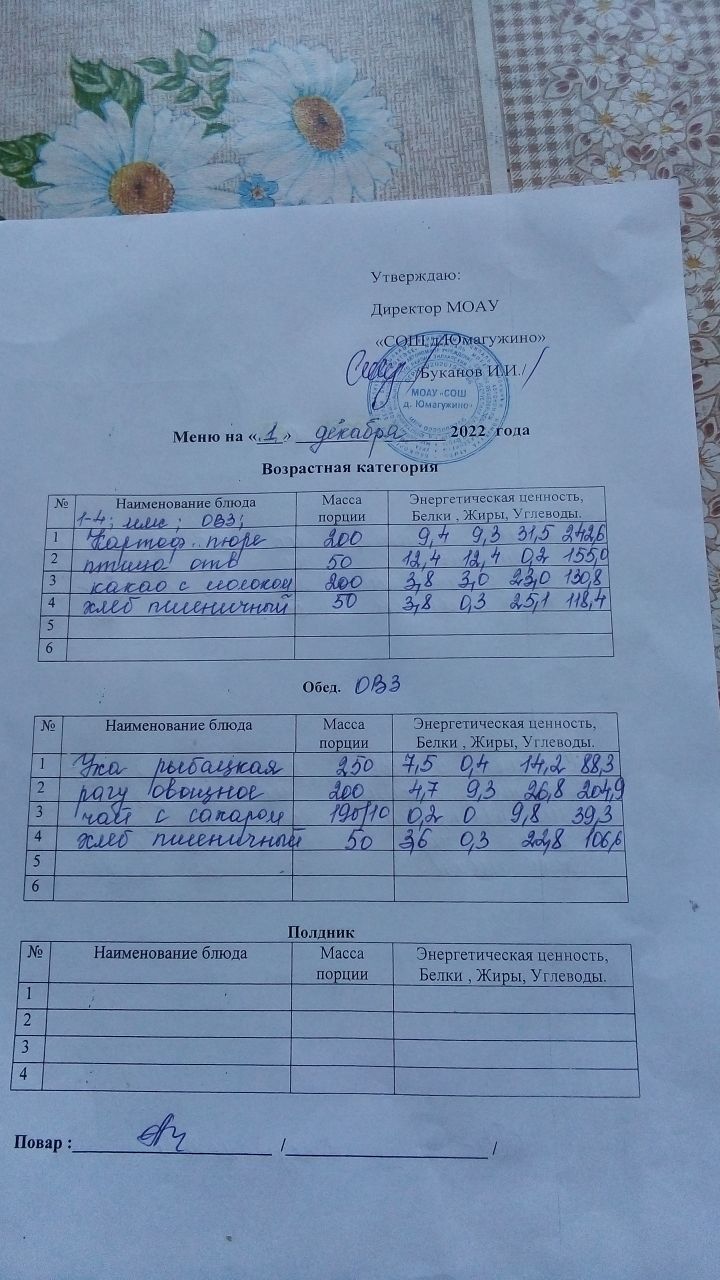 Утверждаю:
Директор МОАУ
«СОШ д.Юмагужино»
/Буканов И.И./
МОАУ «СОШ
д. Юмагужино»
Меню на « 1 » декабря 2022 года
Возрастная категория
№ Наименование блюда Масса порции Энергетическая ценность, Белки , Жиры, Углеводы.
1-4; ОВЗ;
1 Картоф. пюре 200 9,4 9,3 31,5 242,6
2 птица отв 50 12,4 12,4 0,2 155,0
3 какао с молоком 200 3,8 3,0 23,0 130,8
4 хлеб пшеничный 50 3,8 0,3 25,1 118,4
5
6
Обед. ОВЗ
№ Наименование блюда Масса порции Энергетическая ценность, Белки , Жиры, Углеводы.
1 Уха рыбацкая 250 7,5 0,4 14,2 88,3
2 рагу овощное 200 4,7 9,3 26,8 204,9
3 чай с сахаром 190/10 0,2 0 9,8 39,3
4 хлеб пшеничный 50 3,6 0,3 22,8 106,6
5
6
Полдник
№ Наименование блюда Масса порции Энергетическая ценность, Белки , Жиры, Углеводы.
1
2
3
4
Повар : / /